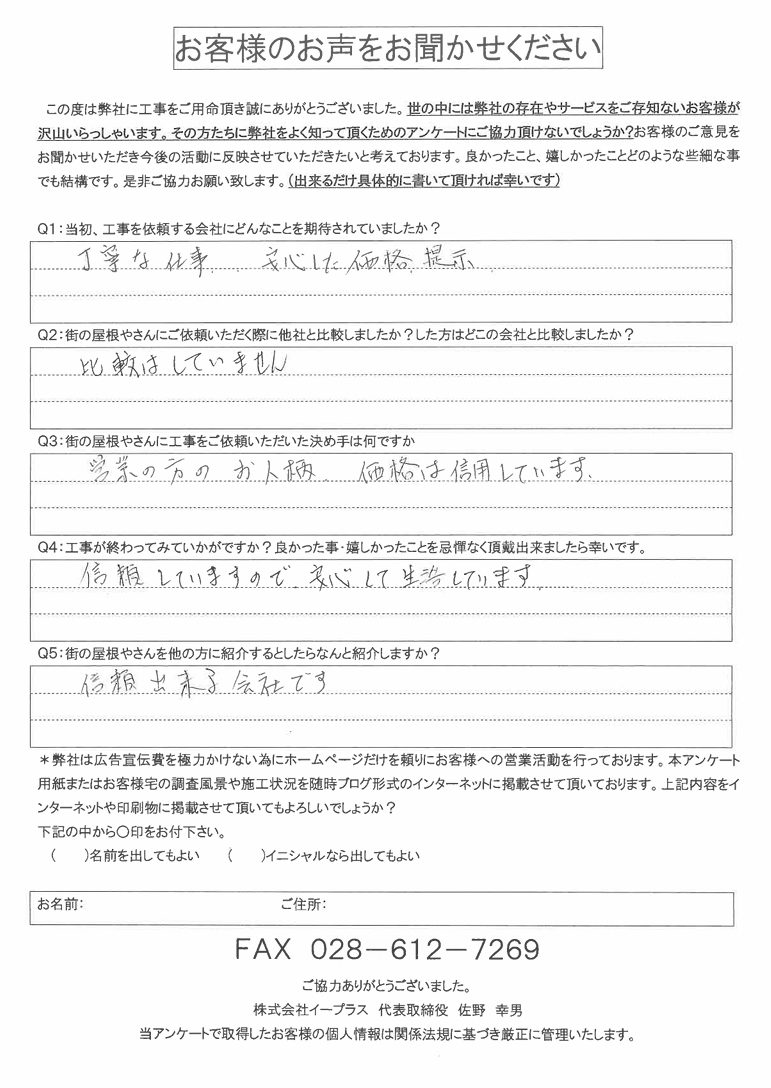 お客様のお声をお聞かせください
この度は弊社に工事をご用命頂き誠にありがとうございました。世の中には弊社の存在やサービスをご存知ないお客様が
沢山いらっしゃいます。その方たちに弊社をよく知って頂くためのアンケートにご協力頂けないでしょうか?お客様のご意見を
お聞かせいただき今後の活動に反映させていただきたいと考えております。良かったこと、嬉しかったことどのような些細な事
でも結構です。是非ご協力お願い致します。(出来るだけ具体的に書いて頂ければ幸いです)
Q1:当初、工事を依頼する会社にどんなことを期待されていましたか?
丁寧な仕事、安心した価格提示、
Q2:街の屋根やさんにご依頼いただく際に他社と比較しましたか?した方はどこの会社と比較しましたか?
比較はしていません
Q3:街の屋根やさんに工事をご依頼いただいた決め手は何ですか
営業の方のお人柄、価格は信用しています、
Q4:工事が終わってみていかがですか?良かった事・嬉しかったことを忌憚なく頂戴出来ましたら幸いです。
信頼していますので、安心して生活しています、
Q5:街の屋根やさんを他の方に紹介するとしたらなんと紹介しますか?
信頼出来る会社です
*弊社は広告宣伝費を極力かけない為にホームページだけを頼りにお客様への営業活動を行っております。本アンケート
用紙またはお客様宅の調査風景や施工状況を随時ブログ形式のインターネットに掲載させて頂いております。上記内容をイ
ンターネットや印刷物に掲載させて頂いてもよろしいでしょうか?
下記の中から〇印をお付下さい。
( )名前を出してもよい ( )イニシャルなら出してもよい
お名前: ご住所:
FAX 028-612-7269
ご協力ありがとうございました。
株式会社イープラス 代表取締役 佐野 幸男
当アンケートで取得したお客様の個人情報は関係法規に基づき厳正に管理いたします。